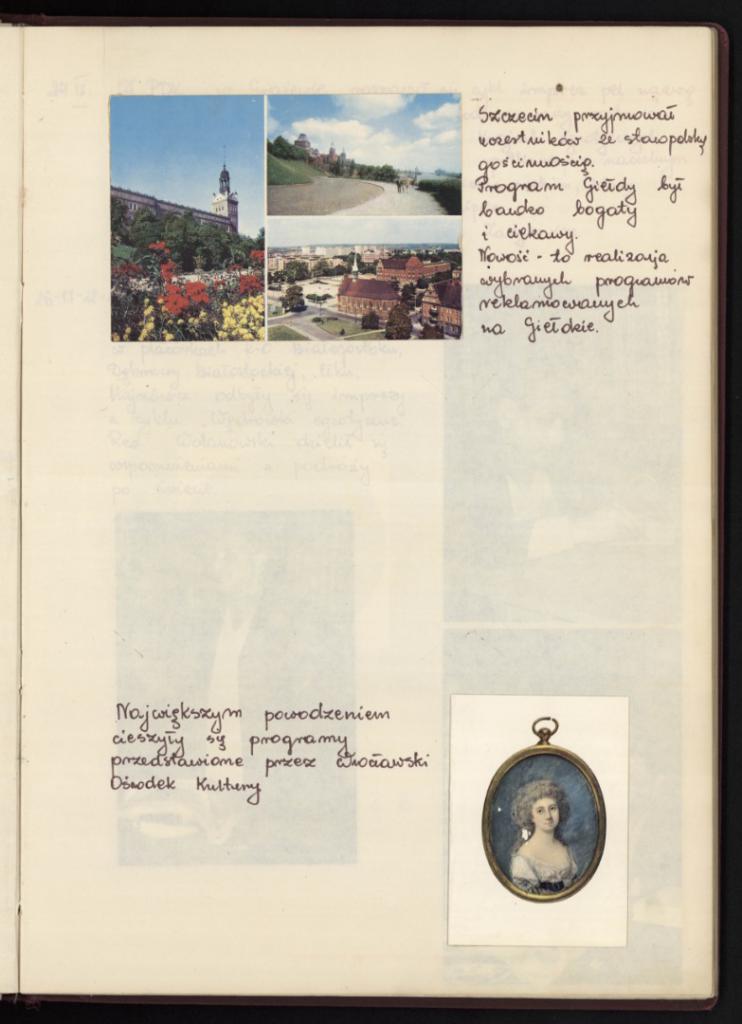 Szczecin przyjmował
uczestników ze staropolską
gościnnością.
Program Giełdy był
bardzo bogaty
i ciekawy.
Nowość - to realizacja
wybranych programów
reklamowanych
na Giełdzie.
w placówkach
Dąbrowy Białostockiej, Ełku,
Największym powodzeniem
cieszyły się programy
przedstawione przez Wrocławski
Ośrodek Kultury